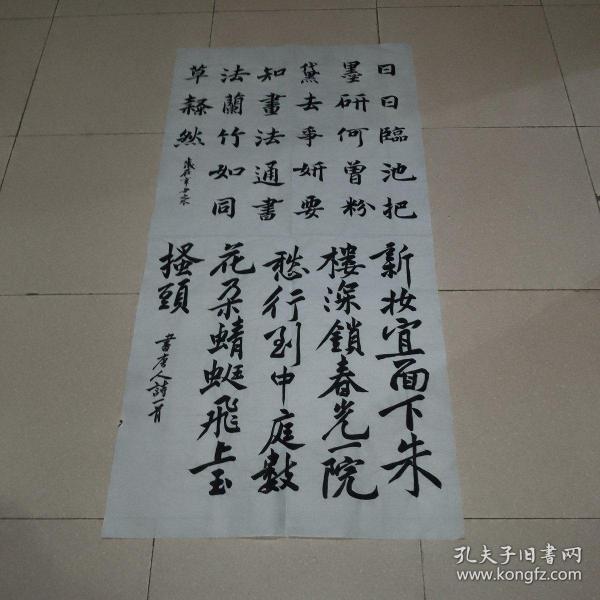 日日臨池把
墨研何曾粉
黛去爭妍要
知畫法通書
法蘭竹如同
草隸然
新妝宜面下朱
樓深鎖春光一院
愁行到中庭數
花朵蜻蜓飛上玉
搔頭
書唐人詩一首
孔夫子旧书网
www.kongfz.com